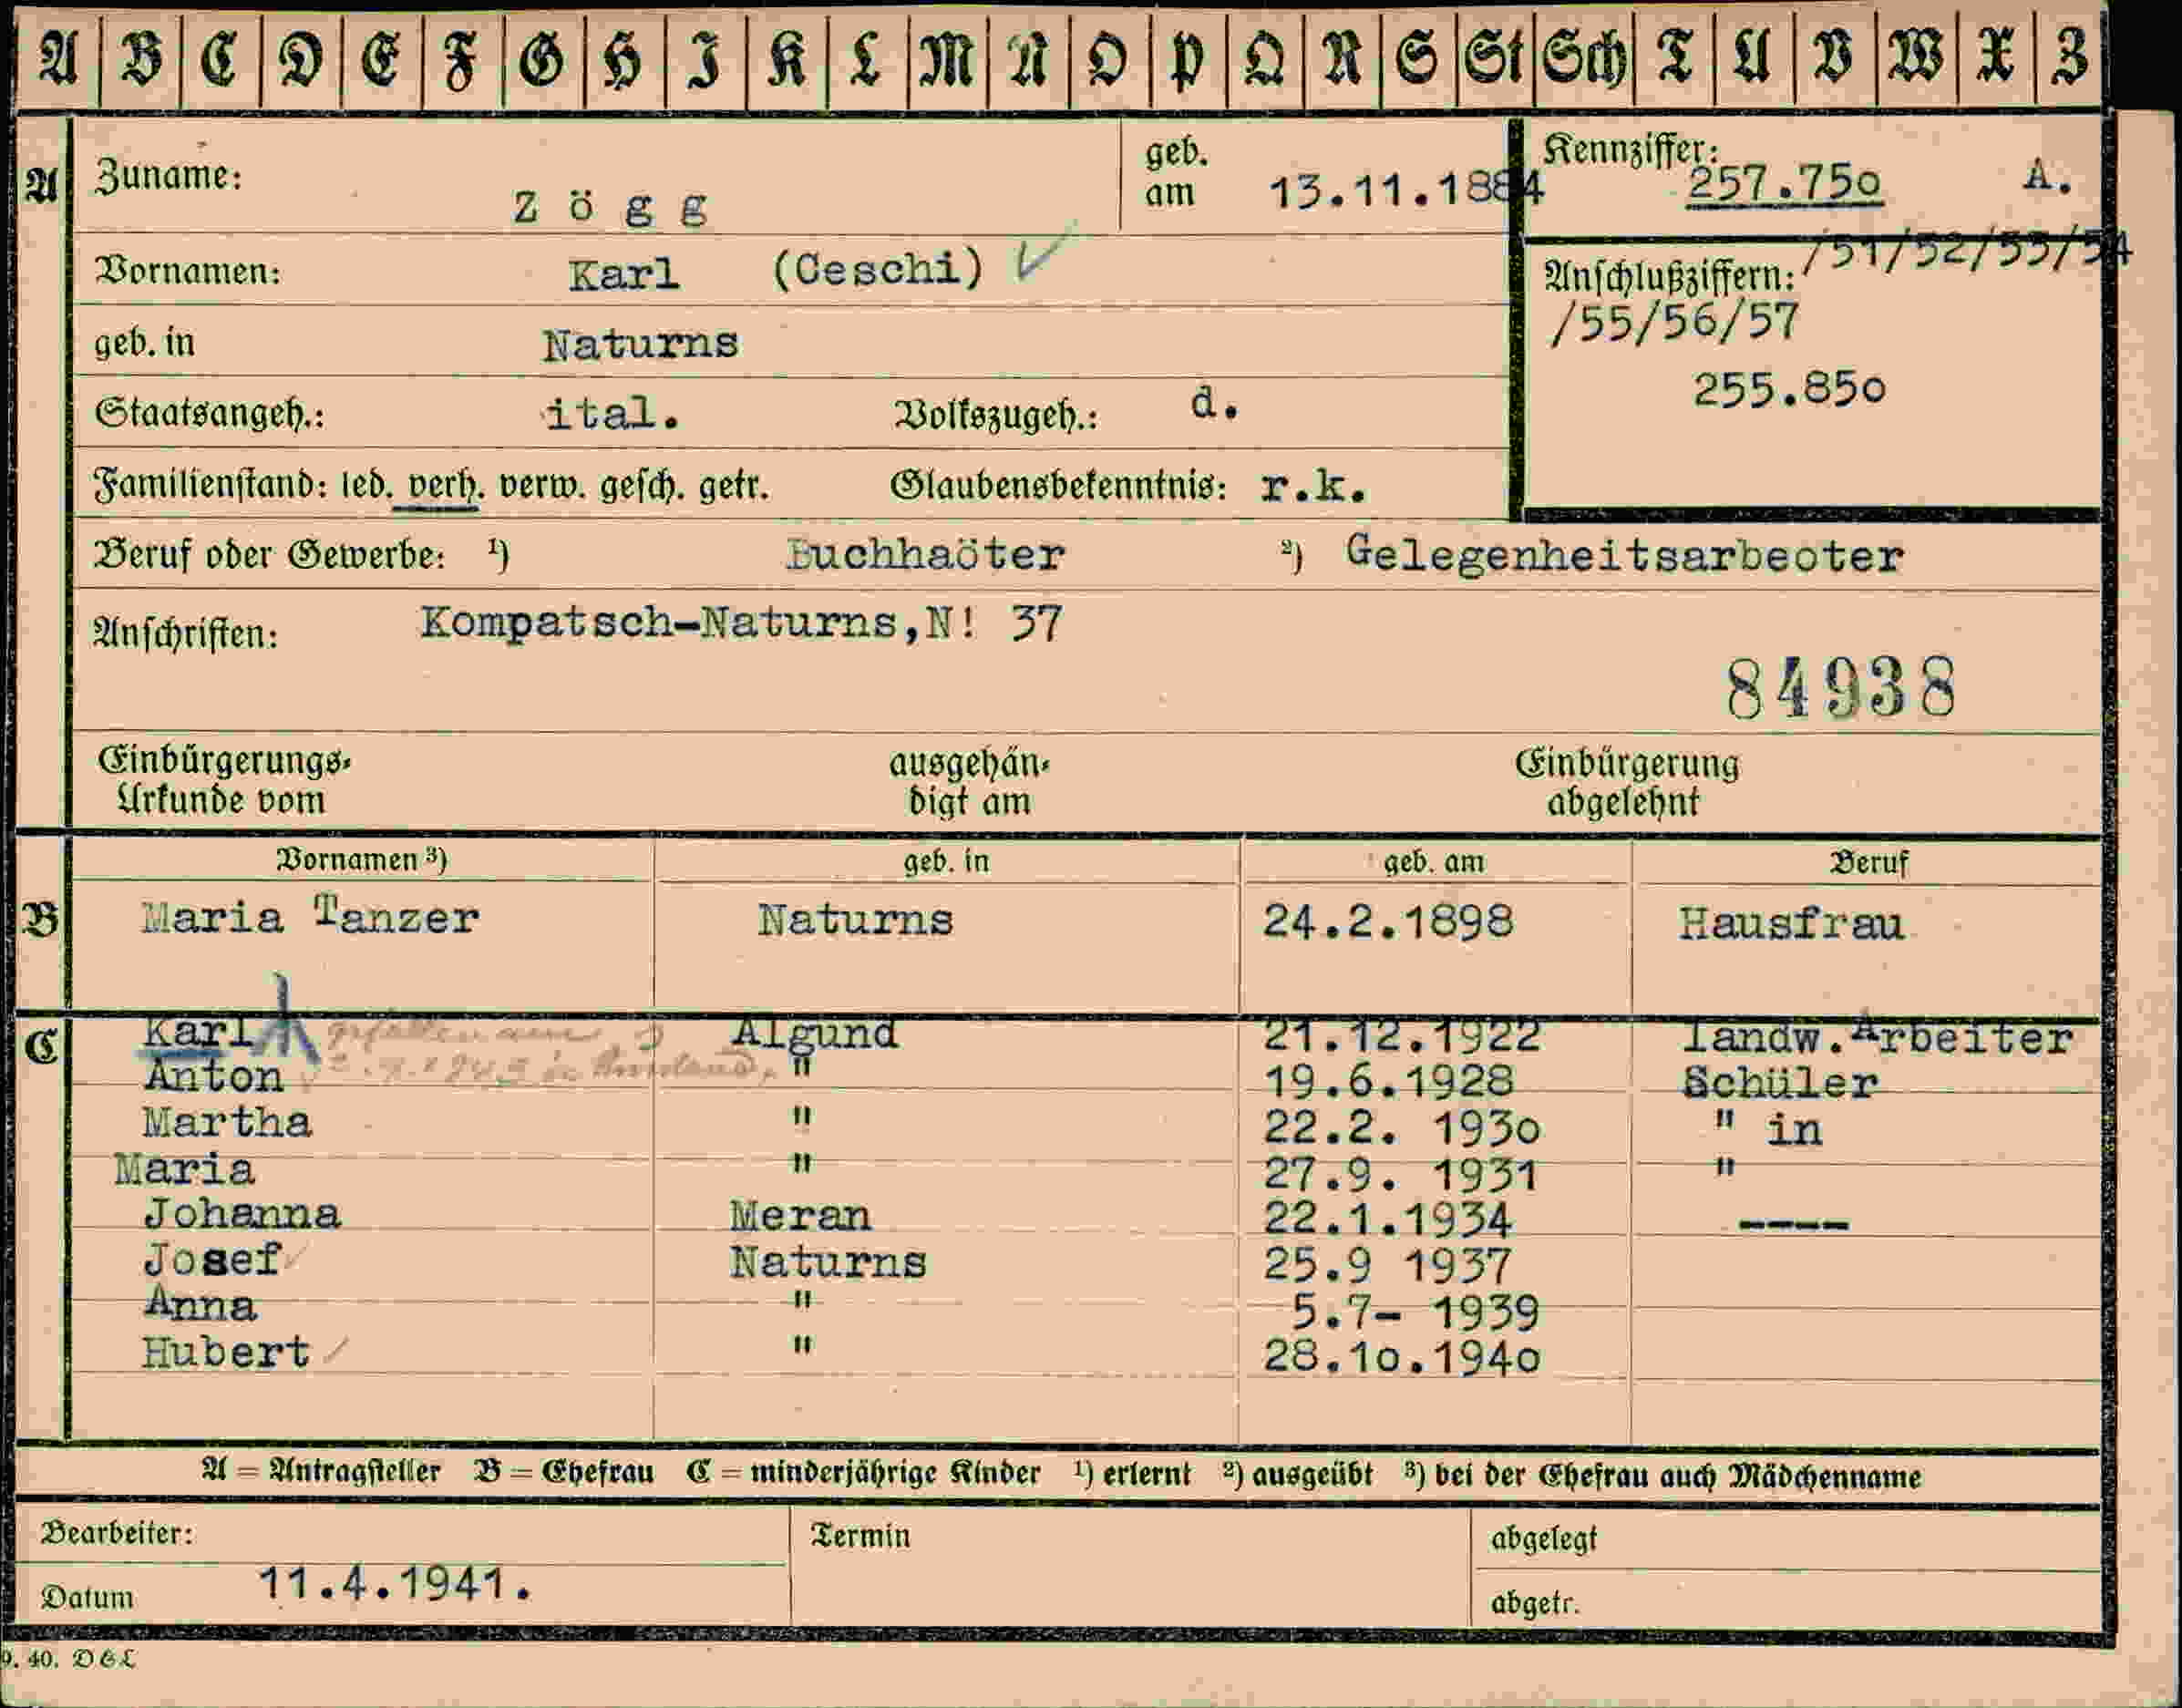 A B C D E F G H I K L M N O P Q R S St Sch T U V W X Z
A Zuname: Zögg geb. am 13.11.1884 Kennziffer: 257.75o A.
Vornamen: Karl (Ceschi) Anschlußziffern: /51/52/53/54
/55/56/57
geb. in Naturns
255.85o
Staatsangeh.: ital. Volkszugeh.: d.
Familienstand: led. verh. verw. gesch. getr. Glaubensbekenntnis: r.k.
Beruf oder Gewerbe: 1) Buchhaöter 2) Gelegenheitsarbeoter
Anschriften: Kompatsch-Naturns,N! 37
84938
Einbürgerungs- Urkunde vom ausgehän- digt am Einbürgerung abgelehnt
Vornamen 3) geb. in geb. am Beruf
B Maria Tanzer Naturns 24.2.1898 Hausfrau
C Karl gefallen am Algund 21.12.1922 landw.Arbeiter
Anton 1943 in Russland. " 19.6.1928 Schüler
Martha " 22.2. 193o " in
Maria " 27.9. 1931 "
Johanna Meran 22.1.1934 ----
Josef Naturns 25.9 1937
Anna " 5.7- 1939
Hubert " 28.1o.194o
A = Antragsteller B = Ehefrau C = minderjährige Kinder 1) erlernt 2) ausgeübt 3) bei der Ehefrau auch Mädchenname
Bearbeiter: Termin abgelegt
Datum 11.4.1941. abgetr.
9. 40. DGL